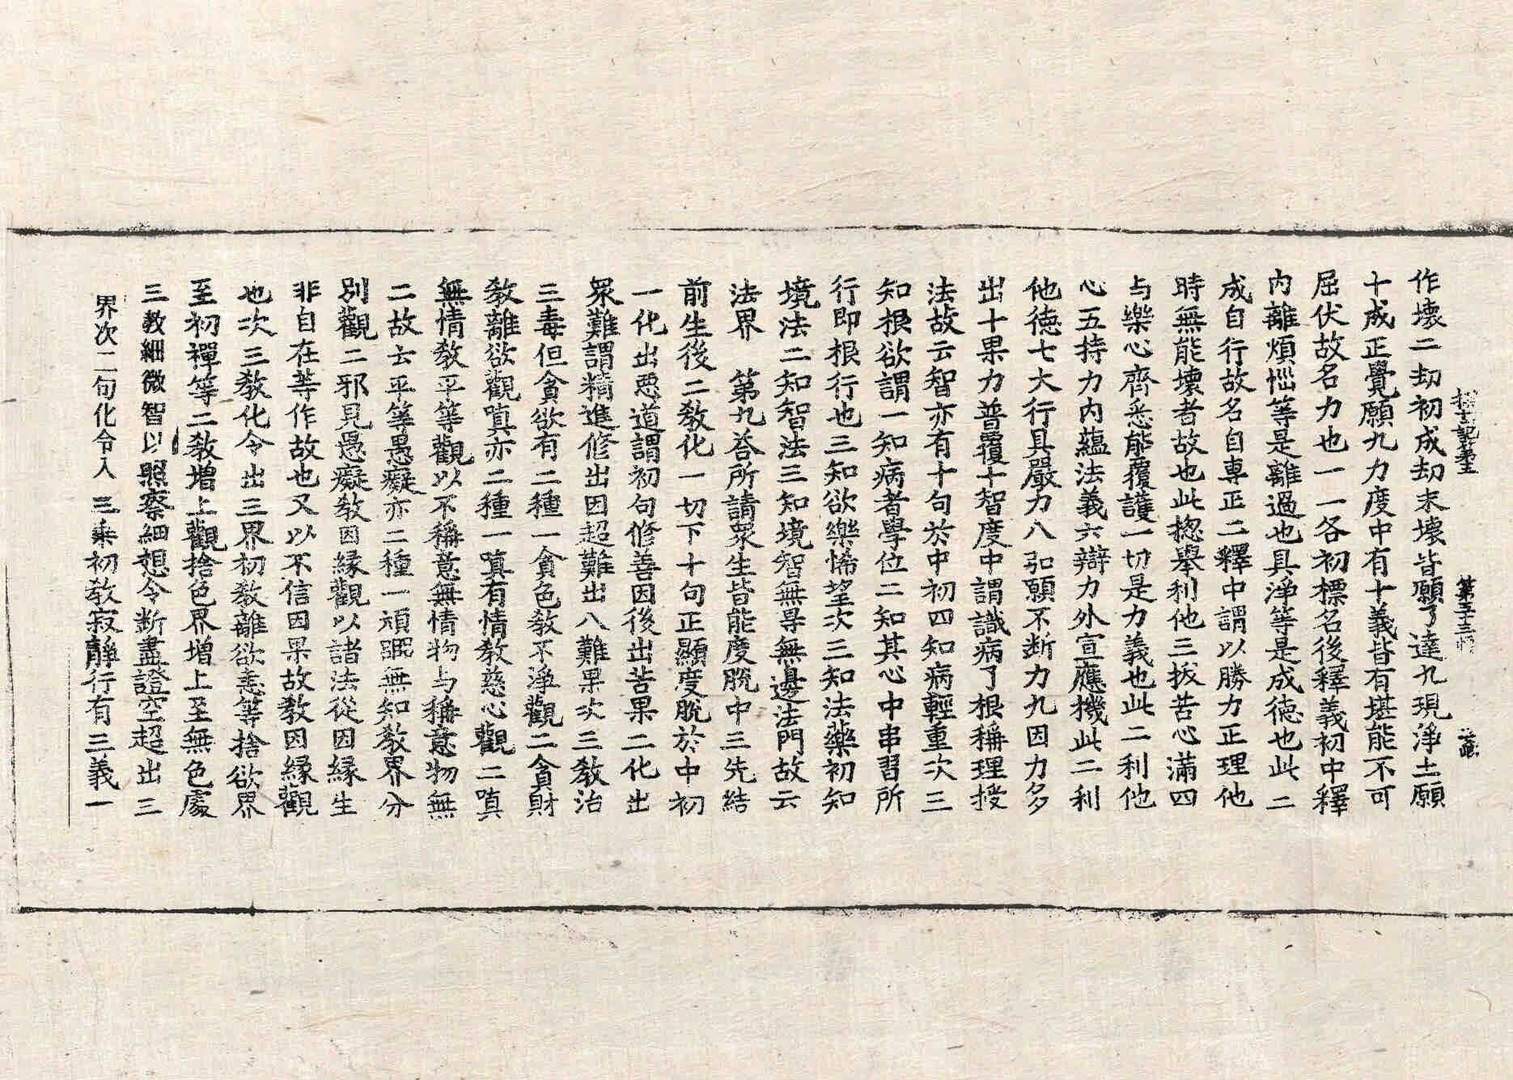 探玄記第五 第五十三幅 塩
作壞二劫初成劫末壞皆願了達九現淨土願
十成正覺願九力度中有十義皆有堪能不可
屈伏故名力也一一各初標名後釋義初中釋
內離煩惱等是離過也具淨等是成德也此二
成自行故名自專正二釋中謂以勝力正理他
時無能壞者故也此揔舉利他三拔苦心滿四
与樂心齊悉能覆護一切是力義也此二利他
心五持力內蘊法義六辯力外宣應機此二利
他德七大行具嚴力八弘願不断力九因力多
出十果力普覆十智度中謂識病了根稱理授
法故云智亦有十句於中初四知病輕重次三
知根欲謂一知病者學位二知其心中串習所
行即根行也三知欲樂悕望次三知法藥初知
境法二知智法三知境智無㝵無邊法門故云
法界 第九荅所請眾生皆能度脫中三先結
前生後二教化一切下十句正顯度脫於中初
一化出惡道謂初句修善因後出苦果二化出
眾難謂精進修出因超難出八難果次三教治
三毒但貪欲有二種一貪色教不淨觀二貪財
教離欲觀嗔亦二種一嗔有情教慈心觀二嗔
無情教平等觀以不稱意無情物与稱意物無
二故云平等愚癡亦二種一頑䮘無知教界分
別觀二邪見愚癡教因緣觀以諸法從因緣生
非自在等作故也又以不信因果故教因緣觀
也次三教化令出三界初教離欲恚等捨欲界
至初禪等二教增上觀捨色界增上至無色處
三教細微智以照察細想令断盡證空超出三
界次二句化令入三乘初教寂靜行有三義一